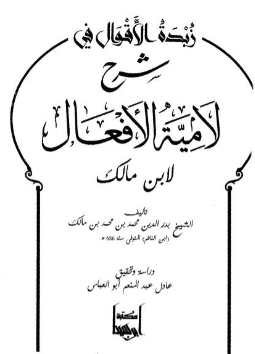 زُبْدَةُ الأَقْوَالِ فِي
شرح
لَامِيَّةِ الأَفْعَالِ
لابن مالك
تأليف
الشيخ بدر الدين محمد بن محمد بن مالك
(ابن الناظم) المتوفى سنة ٦٨٦ هـ
دراسة وتحقيق
عادل عبد المنعم أبو العباس
مكتبة
ابن سينا